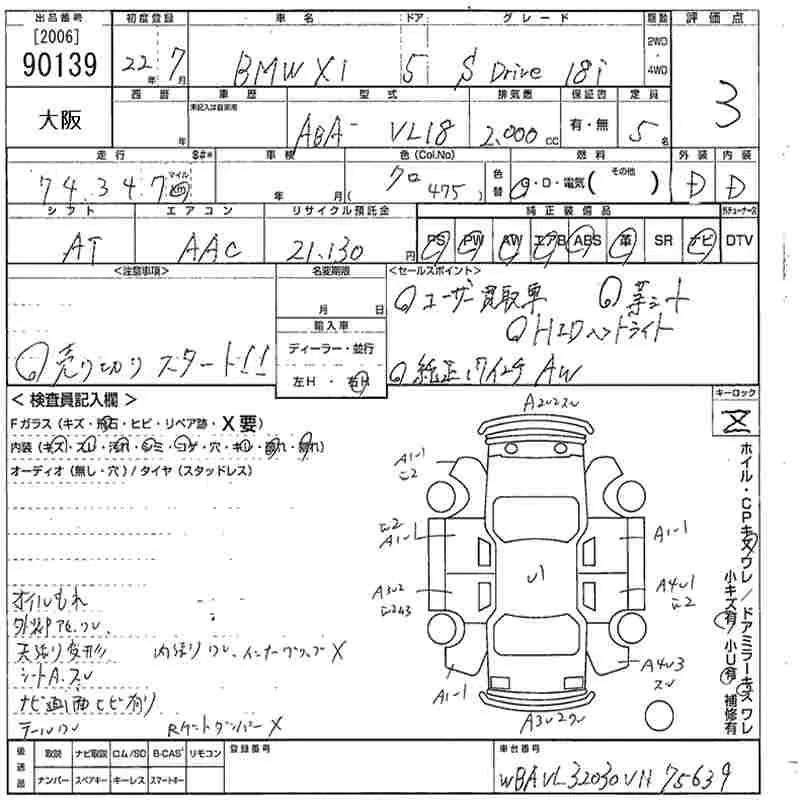 出品番号 初度登録 車名 ドア グレード 駆動 評価点
[2006]
90139 22年 7月 BMW X1 5 S Drive 18i 2WD・4WD 3
大阪 西暦 年 車歴 未記入は自家用 型式 ABA- VL18 排気数 2,000cc 保証書 有・無 定員 5名
走行 $#* 車検 色(Col.No) 色替 燃料 外装 内装
74,347 マイル 年 月 クロ (475) G・D・電気( その他 ) D D
シフト エアコン リサイクル預託金 純正装備品 外チューナーズ
AT AAC 21,130円 PS PW AW エアB ABS 革 SR ナビ DTV
<注意事項> 名変期限 <セールスポイント>
月 日 ユーザー買取車 革シート
輸入車 HIDヘッドライト
売り切りスタート!! ディーラー・並行
左H・右H 純正17インチAW
< 検査員記入欄 > キーロック
Fガラス (キズ・飛石・ヒビ・リペア跡・X要)
内装 (キズ・スレ・汚れ・シミ・コゲ・穴・キレ・割れ・剥れ)
オーディオ (無し・穴) / タイヤ (スタッドレス)
ホイル・CPキズワレ / ドアミラーキズワレ
小キズ有 / 小U有 補修有
A2U2スレ
A1-1
A1-1 A1-1
U1
A3U2 A4U1
A1-1 A4U3
A3U2ワレ
オイルもれ
天張り変形 内張りワレ、インナーグリップX
シートA.スレ
ナビ画面ヒビ有り
テールワレ RゲートダンパーX
後送品 取説 ナビ取説 ロム/SD B-CAS リモコン 登録番号 車台番号
ナンバー スペアキー キーレス スマートキー WBAVL32030VN75639